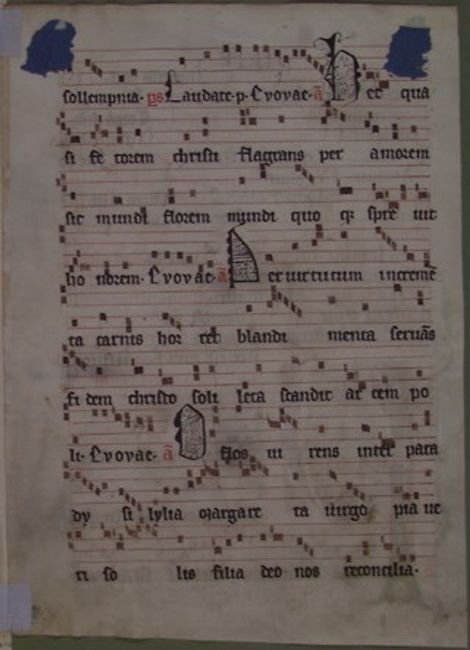 sollempnia. ps Laudate. p. Evovae. a Hec qua
si fe torem christi flagrans per amorem
sic mundi florem mundi quo qz spre uit
ho norem. Evovae. a Per uirtutum increme
ta carnis hor ret blandi menta seruās
fi dem christo soli leta scandit ar cem po
li. Evovae. a O flos ui rens inter para
dy si lylia Margare ta uirgo pia ue
ri so lis filia deo nos reconcilia.